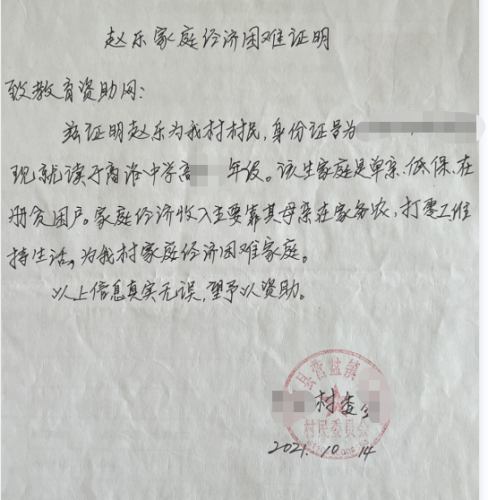 赵乐家庭经济困难证明
致教育资助网:
兹证明赵乐为我村村民,身份证号为
现就读于商洛中学高 年级。该生家庭是单亲、低保、在
册贫困户。家庭经济收入主要靠其母亲在家务农,打零工维
持生活。为我村家庭经济困难家庭。
以上信息真实无误,望予以资助。
县营盘镇
村委会
村民委员会
2021.10.14